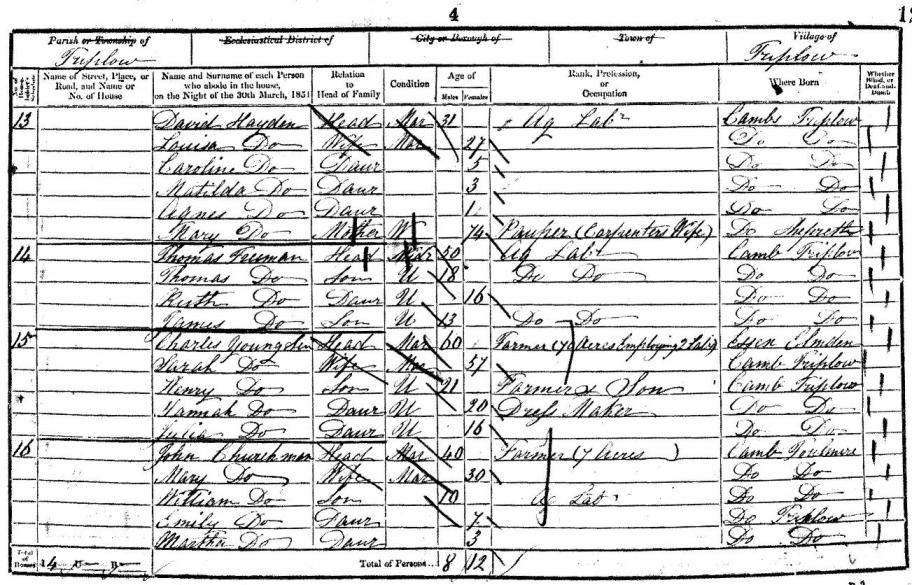 4
12
Parish or Township of Ecclesiastical District of City or Borough of Town of Village of
Triplow Triplow
Name of Street, Place, or Road, and Name or No. of House Name and Surname of each Person who abode in the house, on the Night of the 30th March, 1851 Relation to Head of Family Condition Age of Males Females Rank, Profession, or Occupation Where Born Whether Blind, or Deaf-and-Dumb
13 David Hayden Head Mar 31 Ag Labr Cambs Triplow
Louisa Do Wife Mar 27 Do Do
Caroline Do Daur 5 Do Do
Matilda Do Daur 3 Do Do
Agnes Do Daur 1 Do Do
Mary Do Mother W 74 Pauper (Carpenters Wife) Do
14 Thomas Freeman Head Widr 50 Ag Labr Camb Triplow
Thomas Do Son U 18 Do Do Do Do
Ruth Do Daur U 16 Do Do
James Do Son U 13 Do Do Do Do
15 Charles Head Mar 60 Farmer (70 Acres Employing 2 Labs) Essex Elmden
Sarah Do Wife Mar 57 Camb Triplow
Henry Do Son U 21 Farmers Son Camb Triplow
Hannah Do Daur U 20 Dress Maker Do Do
Julia Do Daur U 16 Do Do
16 John Churchman Head Mar 40 Farmer (7 Acres) Camb Foulmire
Mary Do Wife Mar 30 Do Do
William Do Son 10 Ag Labr Do Do
Emily Do Daur 7 Do Triplow
Martha Do Daur 3 Do Do
Total of Houses 4 U B Total of Persons... 8 12